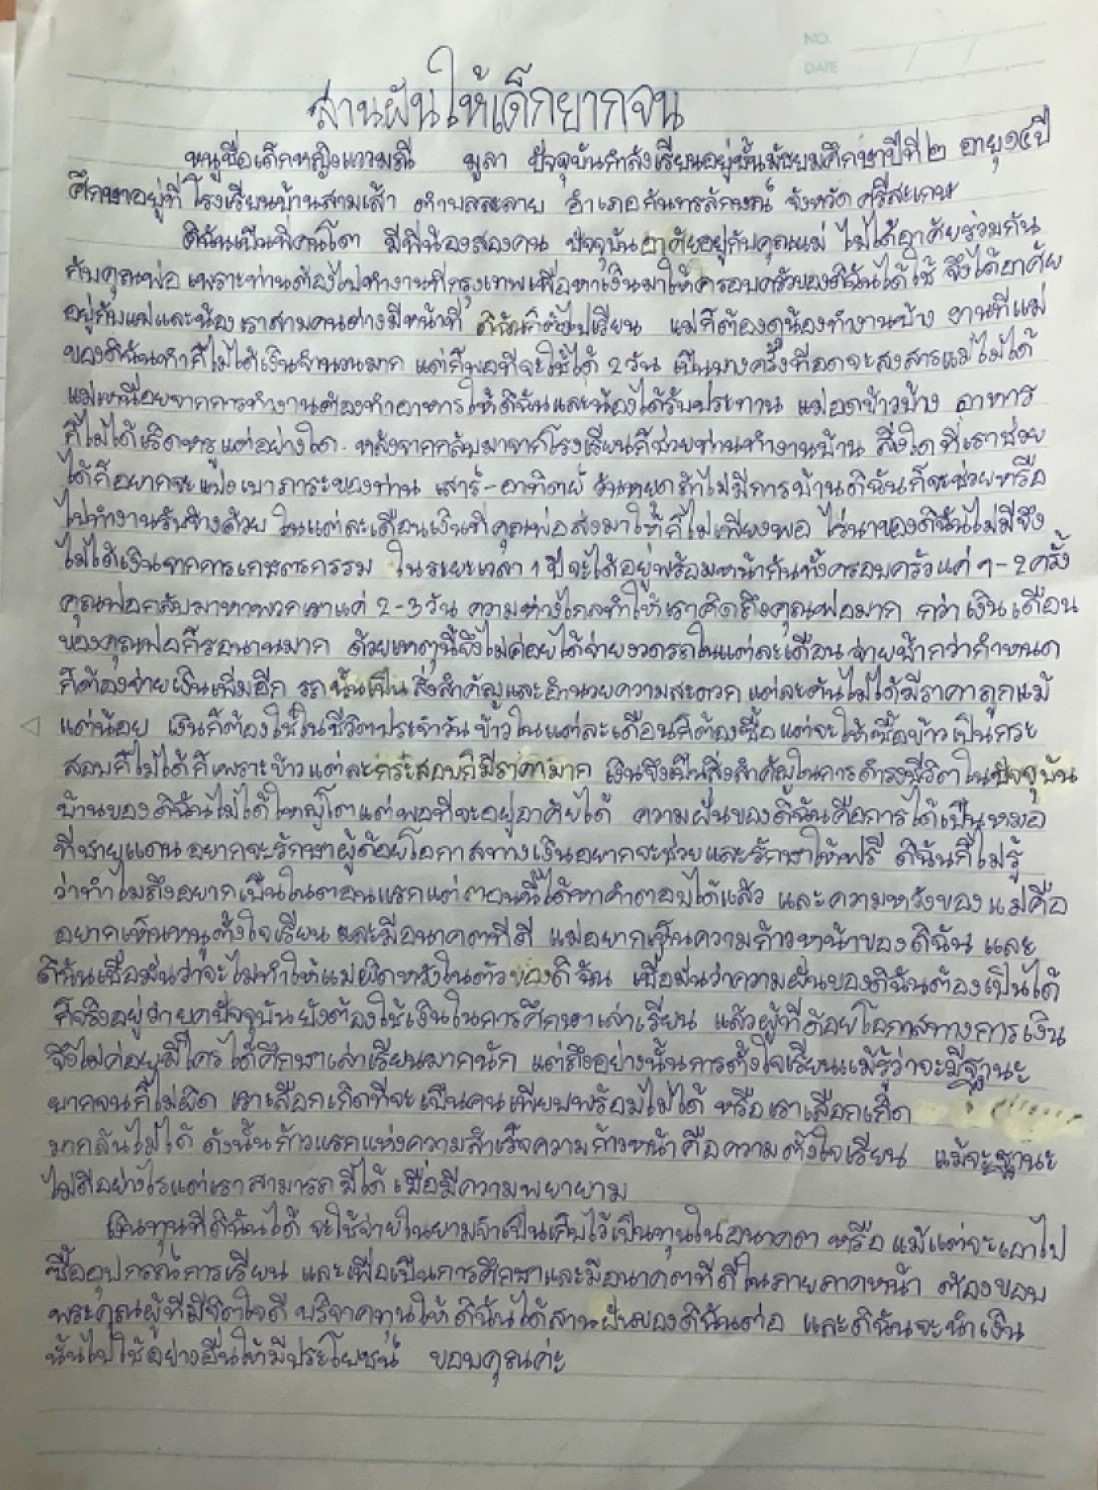 NO.
DATE
สานฝันให้เด็กยากจน
หนูชื่อเด็กหญิงแววมณี มูลา ปัจจุบันกำลังเรียนอยู่ชั้นมัธยมศึกษาปีที่ ๒ อายุ ๑๔ ปี
ศึกษาอยู่ที่ โรงเรียนบ้านสามเส้า ตำบลละลาย อำเภอกันทรลักษณ์ จังหวัด ศรีสะเกษ
ดิฉันเป็นพี่คนโต มีพี่น้องสองคน ปัจจุบันอาศัยอยู่กับคุณแม่ ไม่ได้อาศัยร่วมกัน
กับคุณพ่อ เพราะท่านต้องไปทำงานที่กรุงเทพเพื่อหาเงินมาให้ครอบครัวของดิฉันได้ใช้ จึงได้อาศัย
อยู่กับแม่และน้อง เราสามคนต่างมีหน้าที่ ดิฉันก็ต้องไปเรียน แม่ก็ต้องดูน้องทำงานบ้าง งานที่แม่
ของดิฉันทำก็ไม่ได้เงินจำนวนมาก แต่ก็พอที่จะใช้ได้ 2 วัน เป็นบางครั้งที่อดจะสงสารแม่ไม่ได้
แม่เหนื่อยจากการทำงานต้องทำอาหารให้ดิฉันและน้องได้รับประทาน แม่อดข้าวบ้าง อาหาร
ก็ไม่ได้เริดหรูแต่อย่างใด หลังจากกลับมาจากโรงเรียนก็ช่วยท่านทำงานบ้าน สิ่งใดที่เราช่วย
ได้ก็อยากจะแบ่งเบาภาระของท่าน เสาร์-อาทิตย์ วันหยุดถ้าไม่มีการบ้านดิฉันก็จะช่วยหรือ
ไปทำงานรับจ้างด้วย ในแต่ละเดือนเงินที่คุณพ่อส่งมาให้ก็ไม่เพียงพอ ไร่นาของดิฉันไม่มีจึง
ไม่ได้เงินจากการเกษตรกรรม ในระยะเวลา 1 ปีจะได้อยู่พร้อมหน้ากันทั้งครอบครัวแค่ 1-2 ครั้ง
คุณพ่อกลับมาหาพวกเราแค่ 2-3 วัน ความห่างไกลทำให้เราคิดถึงคุณพ่อมาก กว่าเงินเดือน
ของคุณพ่อก็รอนานมาก ด้วยเหตุนี้จึงไม่ค่อยได้จ่ายงวดรถในแต่ละเดือน จ่ายช้ากว่ากำหนด
ก็ต้องจ่ายเงินเพิ่มอีก รถนั้นเป็นสิ่งสำคัญและอำนวยความสะดวก แต่ละคันไม่ได้มีราคาถูกแม้
แต่น้อย เงินก็ต้องใช้ในชีวิตประจำวัน ข้าวในแต่ละเดือนก็ต้องซื้อ แต่จะให้ซื้อข้าวเป็นกระ
สอบก็ไม่ได้ก็เพราะข้าวแต่ละกระสอบก็มีราคามาก เงินจึงเป็นสิ่งสำคัญในการดำรงชีวิตในปัจจุบัน
บ้านของดิฉันไม่ได้ใหญ่โตแต่พอที่จะอยู่อาศัยได้ ความฝันของดิฉันคือการได้เป็นหมอ
ที่ชายแดน อยากจะรักษาผู้ด้อยโอกาสทางเงินอยากจะช่วยและรักษาให้ฟรี ดิฉันก็ไม่รู้
ว่าทำไมถึงอยากเป็นในตอนแรกแต่ตอนนี้ได้หาคำตอบได้แล้ว และความหวังของแม่คือ
อยากเห็นหนูตั้งใจเรียน และมีอนาคตที่ดี แม่อยากเห็นความก้าวหน้าของดิฉัน และ
ดิฉันเชื่อมั่นว่าจะไม่ทำให้แม่ผิดหวังในตัวของดิฉัน เชื่อมั่นว่าความฝันของดิฉันต้องเป็นได้
ก็จริงอยู่ว่ายุคปัจจุบันยังต้องใช้เงินในการศึกษาเล่าเรียน แล้วผู้ที่ด้อยโอกาสทางการเงิน
จึงไม่ค่อยมีใครได้ศึกษาเล่าเรียนมากนัก แต่ถึงอย่างนั้นการตั้งใจเรียนแม้รู้ว่าจะมีฐานะ
ยากจนก็ไม่ผิด เราเลือกเกิดที่จะเป็นคนเพียบพร้อมไม่ได้ หรือเราเลือกเกิด
มากลับไม่ได้ ดังนั้นก้าวแรกแห่งความสำเร็จความก้าวหน้าคือความตั้งใจเรียน แม้จะฐานะ
ไม่ดีอย่างไรแต่เราสามารถมีได้ เมื่อมีความพยายาม
เงินทุนที่ดิฉันได้ จะใช้จ่ายในยามจำเป็นเก็บไว้เป็นทุนในอนาคต หรือ แม้แต่จะเอาไป
ซื้ออุปกรณ์การเรียน และเพื่อเป็นการศึกษาและมีอนาคตที่ดีในภายภาคหน้า ต้องขอบ
พระคุณผู้ที่มีจิตใจดี บริจาคทุนให้ดิฉันได้สานฝันของดิฉันต่อ และดิฉันจะนำเงิน
นั้นไปใช้อย่างอื่นให้มีประโยชน์ ขอบคุณค่ะ